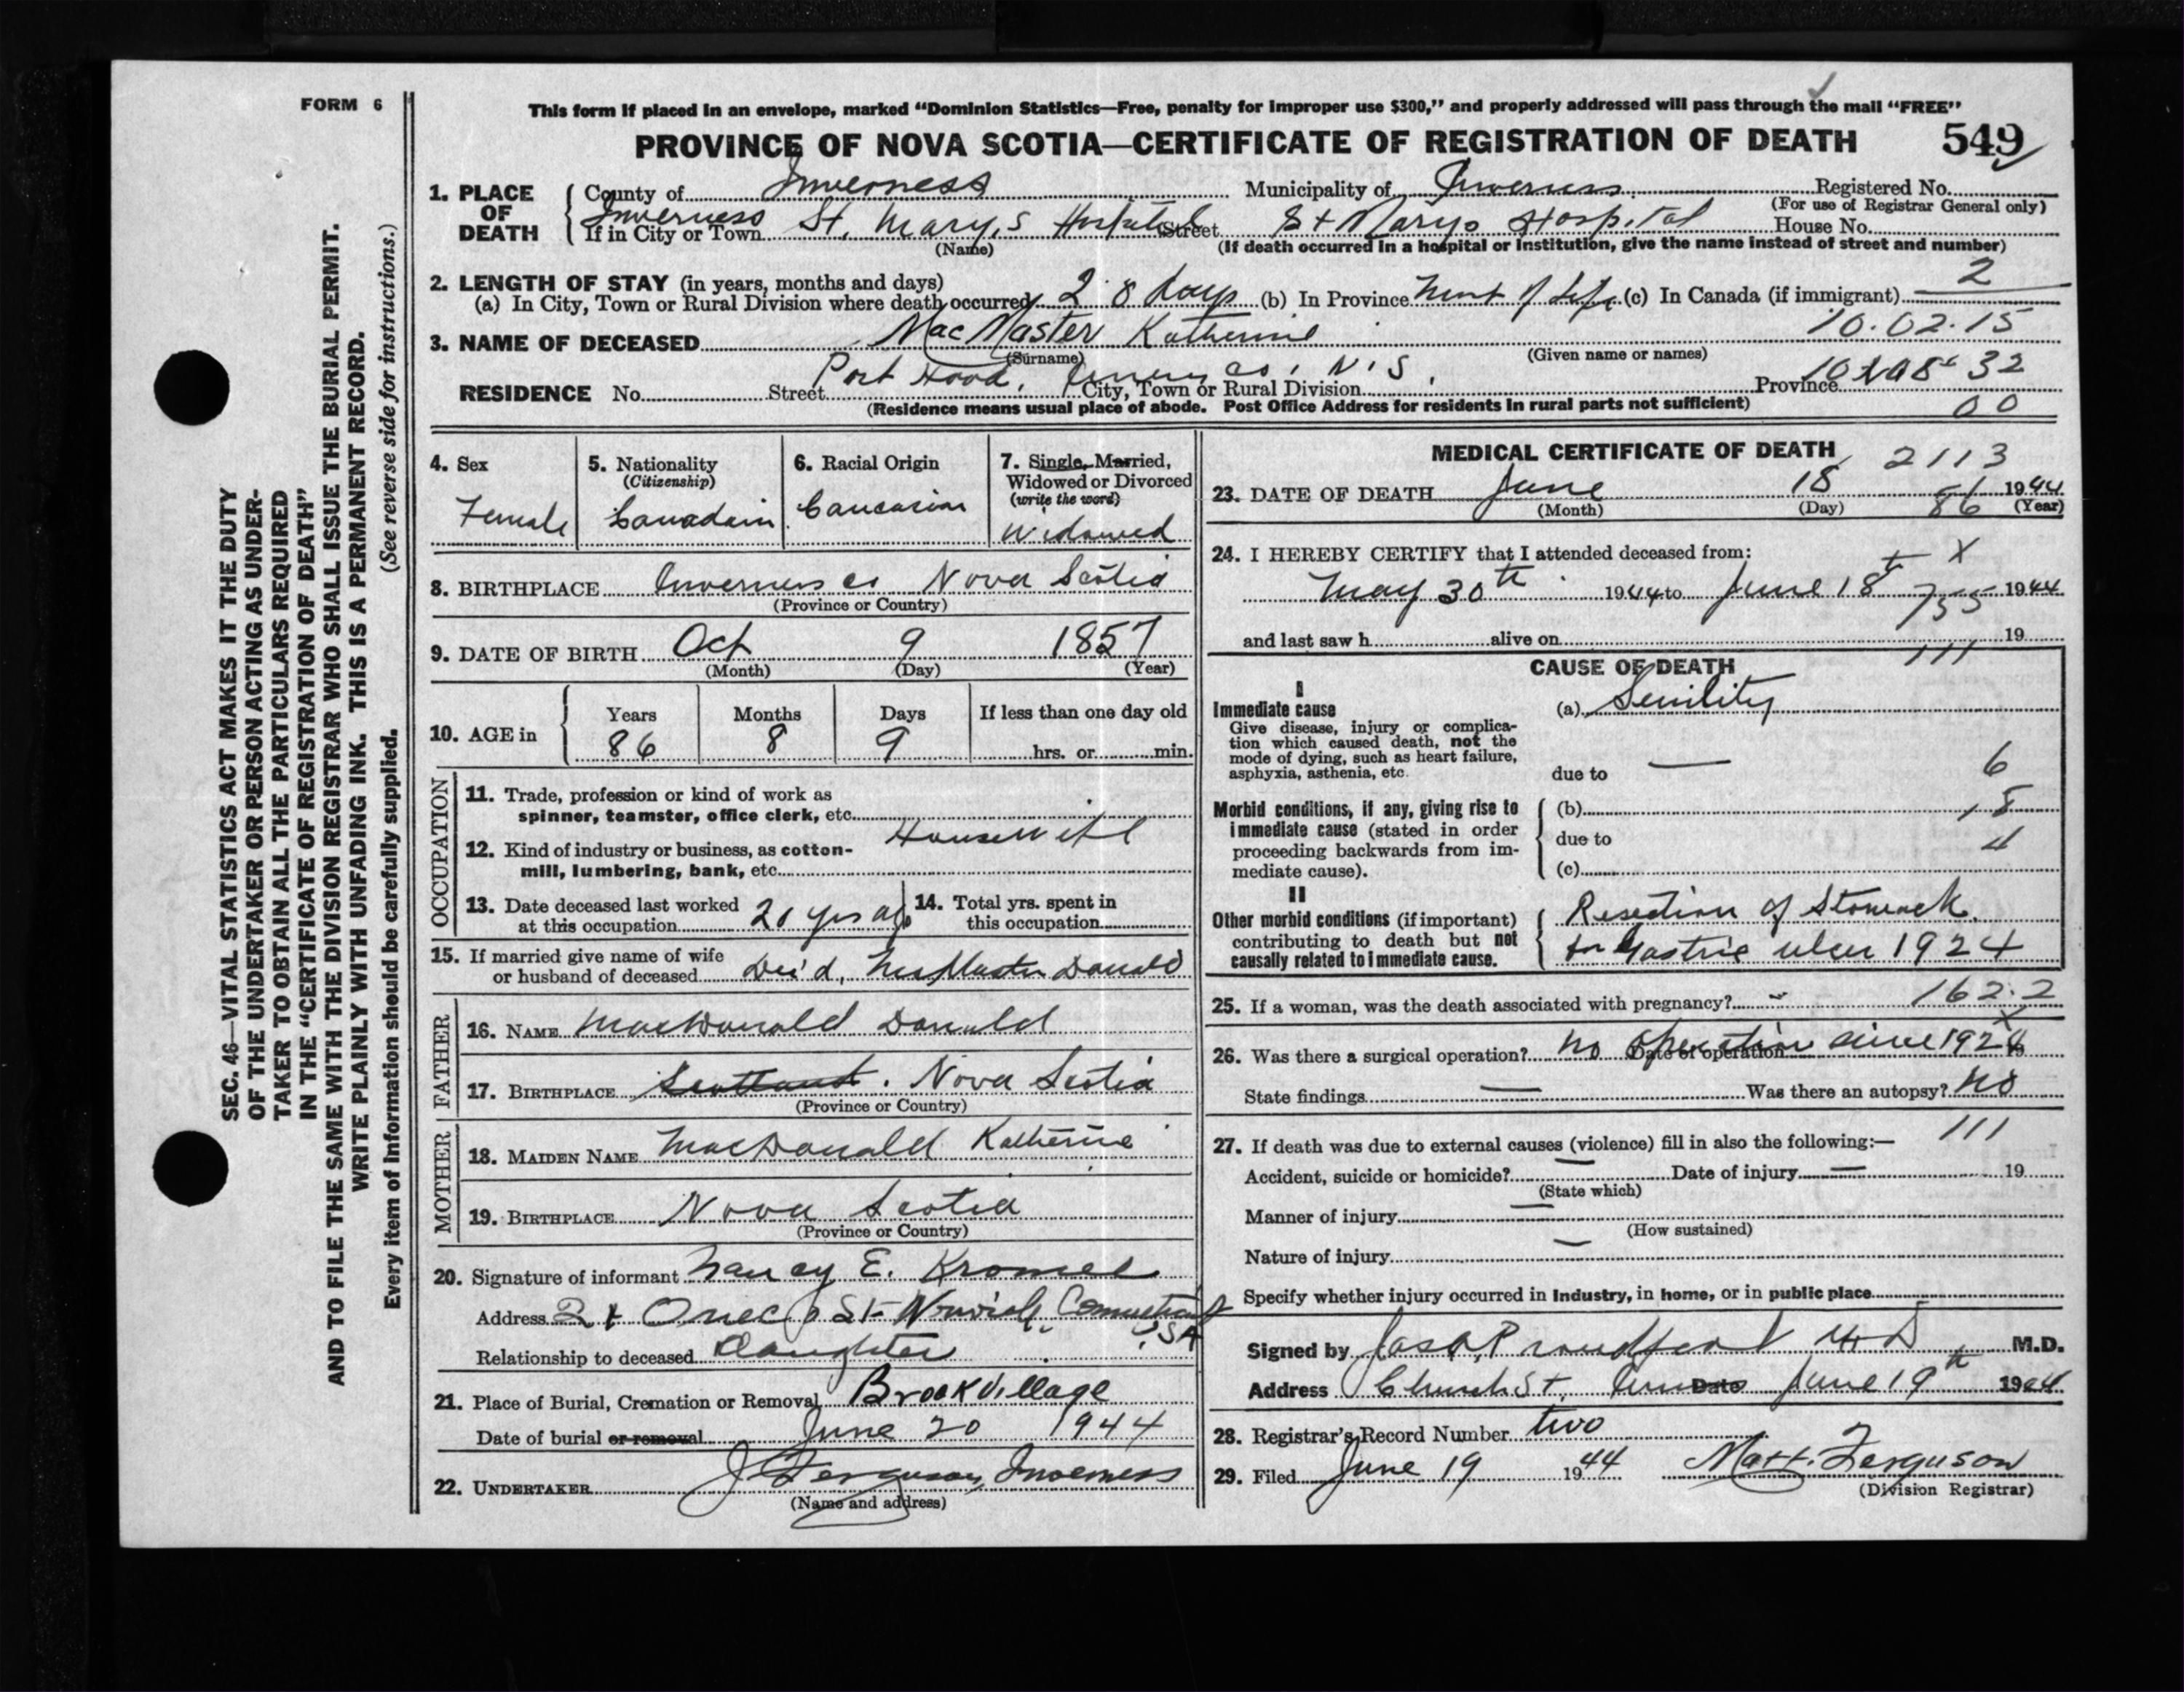 FORM 6
This form if placed in an envelope, marked “Dominion Statistics—Free, penalty for improper use $300,” and properly addressed will pass through the mail “FREE”
PROVINCE OF NOVA SCOTIA—CERTIFICATE OF REGISTRATION OF DEATH 549
SEC. 46—VITAL STATISTICS ACT MAKES IT THE DUTY
OF THE UNDERTAKER OR PERSON ACTING AS UNDER-
TAKER TO OBTAIN ALL THE PARTICULARS REQUIRED
IN THE “CERTIFICATE OF REGISTRATION OF DEATH”
AND TO FILE THE SAME WITH THE DIVISION REGISTRAR WHO SHALL ISSUE THE BURIAL PERMIT.
WRITE PLAINLY WITH UNFADING INK. THIS IS A PERMANENT RECORD.
Every item of information should be carefully supplied. (See reverse side for instructions.)
1. PLACE OF DEATH
County of Inverness Municipality of Inverness Registered No.
(For use of Registrar General only)
Inverness
If in City or Town St. Mary's Hospital Street St Marys Hospital House No.
(Name) (If death occurred in a hospital or institution, give the name instead of street and number)
2. LENGTH OF STAY (in years, months and days) 2
(a) In City, Town or Rural Division where death occurred 28 days (b) In Province Most of Life (c) In Canada (if immigrant)
10.02.15
3. NAME OF DECEASED MacMaster Katherine
(Surname) (Given name or names)
RESIDENCE No. Street Port Hood, Inver Co, N.S. City, Town or Rural Division Province
32
(Residence means usual place of abode. Post Office Address for residents in rural parts not sufficient) 00
4. Sex
Female
5. Nationality
(Citizenship)
Canadain
6. Racial Origin
Caucasian
7. Single, Married,
Widowed or Divorced
(write the word)
Widowed
8. BIRTHPLACE Inverness co Nova Scotia
(Province or Country)
9. DATE OF BIRTH Oct 9 1857
(Month) (Day) (Year)
10. AGE in
Years Months Days If less than one day old
86 8 9 hrs. or min.
OCCUPATION
11. Trade, profession or kind of work as
spinner, teamster, office clerk, etc.
Housewife
12. Kind of industry or business, as cotton-
mill, lumbering, bank, etc.
13. Date deceased last worked
at this occupation 20 yrs ago
14. Total yrs. spent in
this occupation
15. If married give name of wife
or husband of deceased Dec'd, MacMaster Donald
FATHER
16. NAME MacDonald Donald
17. BIRTHPLACE Scotland. Nova Scotia
(Province or Country)
MOTHER
18. MAIDEN NAME MacDonald Katherine
19. BIRTHPLACE Nova Scotia
(Province or Country)
20. Signature of informant Nancy E. Kromer
Address Oneco St Norwich, Connecticut
USA
Relationship to deceased Daughter
21. Place of Burial, Cremation or Removal Brook Village
Date of burial or removal June 20 1944
22. UNDERTAKER J Ferguson, Inverness
(Name and address)
MEDICAL CERTIFICATE OF DEATH
2113
23. DATE OF DEATH June 18 1944
(Month) (Day) 86 (Year)
24. I HEREBY CERTIFY that I attended deceased from: X
May 30th 1944 to June 18th 1944
755
and last saw h alive on 19
111
CAUSE OF DEATH
I
Immediate cause
Give disease, injury or complica-
tion which caused death, not the
mode of dying, such as heart failure,
asphyxia, asthenia, etc.
(a) Senility
due to —
6
Morbid conditions, if any, giving rise to
immediate cause (stated in order
proceeding backwards from im-
mediate cause).
(b) 8
due to 4
(c)
II
Other morbid conditions (if important)
contributing to death but not
causally related to immediate cause.
Resection of Stomack
for Gastric ulcer 1924
25. If a woman, was the death associated with pregnancy? 162.2
26. Was there a surgical operation? No operation since 1924 Date of operation 19
State findings — Was there an autopsy? No
27. If death was due to external causes (violence) fill in also the following:— 111
Accident, suicide or homicide? — Date of injury — 19
(State which)
Manner of injury —
(How sustained)
Nature of injury —
Specify whether injury occurred in industry, in home, or in public place
Signed by Jas A Proudfoot MD M.D.
Address Church St, Inver Date June 19th 1944
28. Registrar's Record Number two
29. Filed June 19 1944 Matt. Ferguson
(Division Registrar)